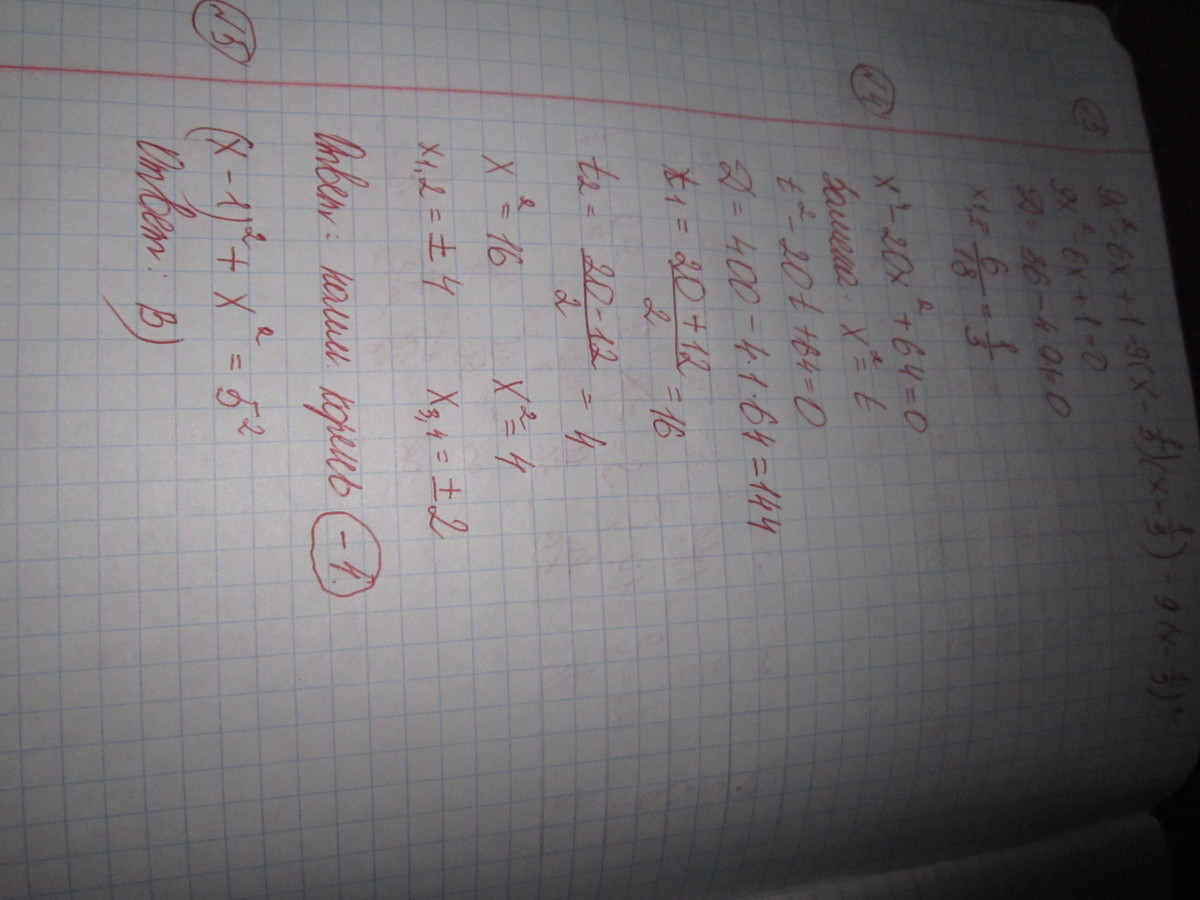 №3
9x² - 6x + 1 = 9(x - 1/3)(x - 1/3) = 9(x - 1/3)²
9x² - 6x + 1 = 0
D = 36 - 4·9·1 = 0
x₁,₂ = 6/18 = 1/3
№4
x⁴ - 20x² + 64 = 0
Замена: x² = t
t² - 20t + 64 = 0
D = 400 - 4·1·64 = 144
t₁ = (20 + 12)/2 = 16
t₂ = (20 - 12)/2 = 4
x² = 16 x² = 4
x₁,₂ = ± 4 x₃,₄ = ± 2
Ответ: наим. корень -4.
№5
(x - 1)² + x² = 5²
Ответ: В)